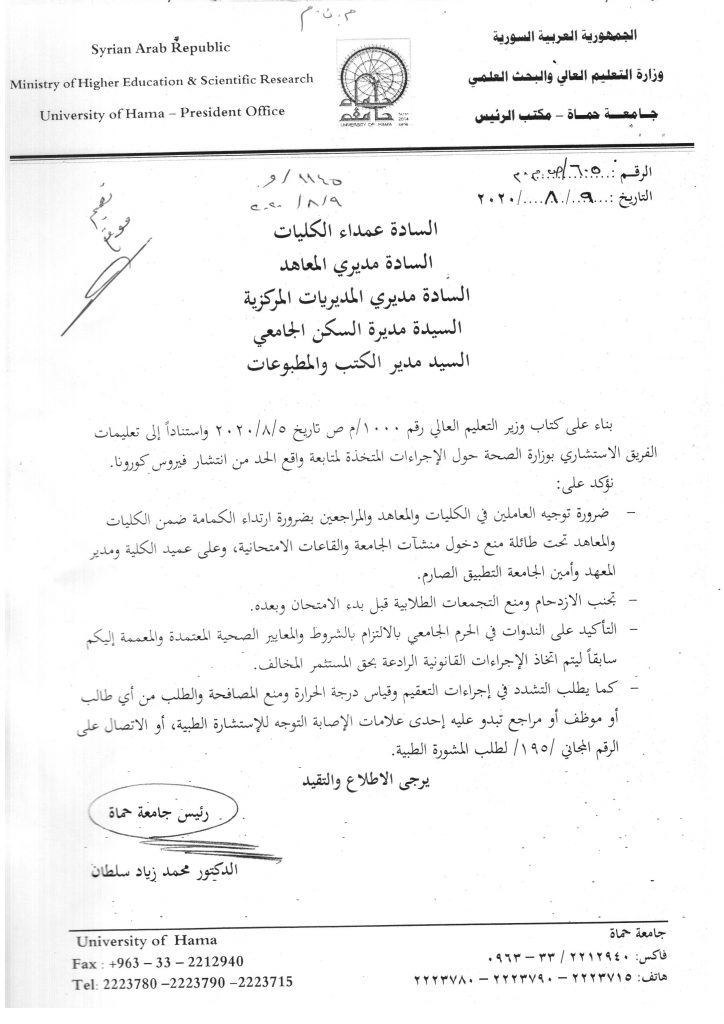 م.ن.م
الجمهورية العربية السورية
وزارة التعليم العالي والبحث العلمي
جامعة حماة – مكتب الرئيس
Syrian Arab Republic
Ministry of Higher Education & Scientific Research
University of Hama – President Office
جامعة حماة
UNIVERSITY OF HAMA
الرقم :٦٠٥/ص.م.٢
التاريخ :...٩../...٨./٢٠٢٠
١١٤٥/و
٢٠٢٠/٨/٩
تعميم
موقع
السادة عمداء الكليات
السادة مديري المعاهد
السادة مديري المديريات المركزية
السيدة مديرة السكن الجامعي
السيد مدير الكتب والمطبوعات
بناء على كتاب وزير التعليم العالي رقم ١٠٠٠/م ص تاريخ ٢٠٢٠/٨/٥ واستناداً إلى تعليمات
الفريق الاستشاري بوزارة الصحة حول الإجراءات المتخذة لمتابعة واقع الحد من انتشار فيروس كورونا.
نؤكد على:
– ضرورة توجيه العاملين في الكليات والمعاهد والمراجعين بضرورة ارتداء الكمامة ضمن الكليات
والمعاهد تحت طائلة منع دخول منشآت الجامعة والقاعات الامتحانية، وعلى عميد الكلية ومدير
المعهد وأمين الجامعة التطبيق الصارم.
– تجنب الازدحام ومنع التجمعات الطلابية قبل بدء الامتحان وبعده.
– التأكيد على الندوات في الحرم الجامعي بالالتزام بالشروط والمعايير الصحية المعتمدة والمعممة إليكم
سابقاً ليتم اتخاذ الإجراءات القانونية الرادعة بحق المستثمر المخالف.
– كما يطلب التشدد في إجراءات التعقيم وقياس درجة الحرارة ومنع المصافحة والطلب من أي طالب
أو موظف أو مراجع تبدو عليه إحدى علامات الإصابة التوجه للإستشارة الطبية، أو الاتصال على
الرقم المجاني /١٩٥/ لطلب المشورة الطبية.
يرجى الاطلاع والتقيد
رئيس جامعة حماة
الدكتور محمد زياد سلطان
جامعة حماة
فاكس: ٢٢١٢٩٤٠ / ٣٣ – ٠٩٦٣
هاتف: ٢٢٢٣٧١٥ – ٢٢٢٣٧٩٠ – ٢٢٢٣٧٨٠
University of Hama
Fax : +963 – 33 – 2212940
Tel: 2223780 –2223790 –2223715